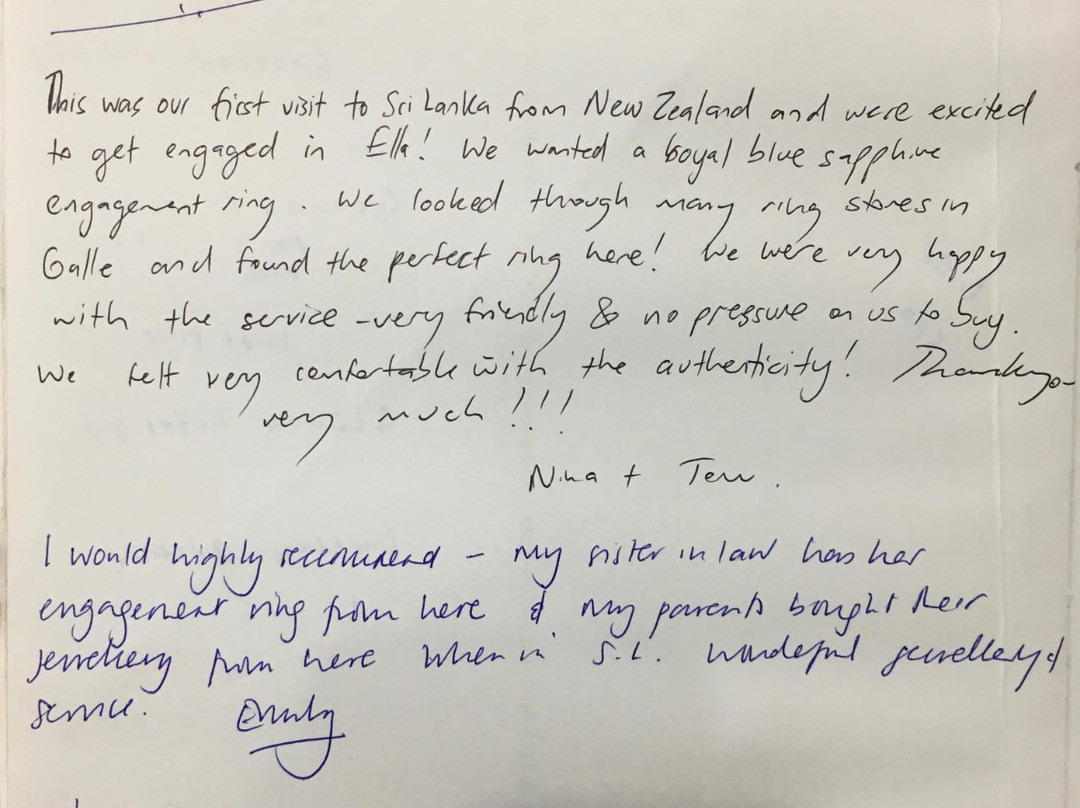 This was our first visit to Sri Lanka from New Zealand and were excited
to get engaged in Ella! We wanted a royal blue sapphire
engagement ring. We looked though many ring stores in
Galle and found the perfect ring here! We were very happy
with the service - very friendly & no pressure on us to buy.
We felt very comfortable with the authenticity! Thankyou
very much!!!
Nina +
I would highly recommend - my sister in law has her
engagement ring from here & my parents bought their
jewellery from here when in S.L. wonderful jewellery &
service. Emily